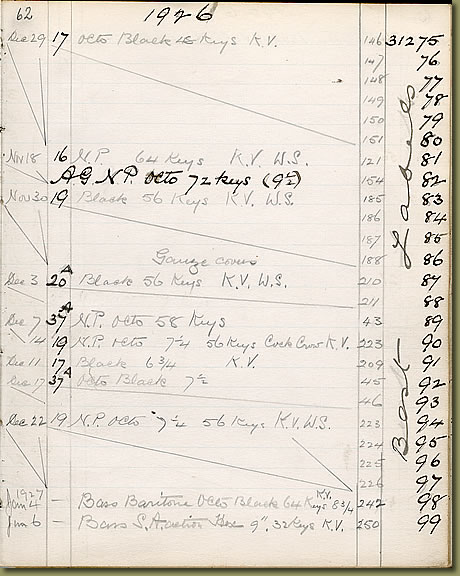 62 1926
Dec 29 17 Octo Black 48 Keys K.V. 146 31275
147 76
148 77
149 78
150 79
151 80
Nov 18 16 N.P. 64 Keys K.V. W.S. 121 81
AG N.P. Octo 72 Keys (9½) 154 82
Nov 30 19 Black 56 Keys K.V. W.S. 185 83
186 84
187 85
Gauze covers 188 86
Dec 3 20A Black 56 Keys K.V. W.S. 210 87
211 88
Dec 7 37A N.P. Octo 58 Keys 43 89
14 19 N.P. Octo 7¼ 56 Keys Cock Crow K.V. 223 90
Dec 11 17 Black 6¾ K.V. 209 91
Dec 17 37A Octo Black 7½ 45 92
46 93
Dec 22 19 N.P. Octo 7¼ 56 Keys K.V. W.S. 223 94
224 95
225 96
226 97
1927
Jan 4 — Bass Baritone Octo Black 64 Keys K.V. 8¾ 242 98
Jan 6 — Bass S. H. action Hex 9", 32 Keys K.V. 250 99
Labels
Best